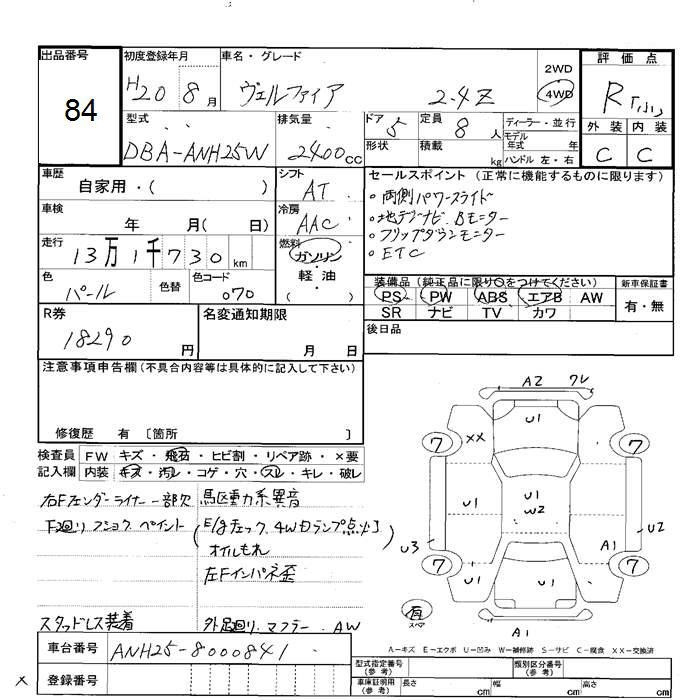 出品番号 初度登録年月 車名・グレード 評価点
84
H20 8月 ヴェルファイア 2.4Z 2WD 4WD
R「小」
型式 排気量 ドア 定員 ディーラー・並行 外装 内装
DBA-ANH25W 2400cc 5 8人 モデル年式 年 C C
形状 積載 kg ハンドル 左・右
車歴 シフト セールスポイント (正常に機能するものに限ります)
自家用・( ) AT
。両側パワースライド
車検 冷房
年 月( 日) AAC
。地デジナビ、Bモニター
。フリップダウンモニター
。ETC
走行 燃料
13万1千730km ガソリン
軽・油
( )
色 色替 色コード
パール 070
装備品 (純正品に限り○をつけてください) 新車保証書
PS PW ABS エアB AW 有・無
SR ナビ TV カワ
R券 名変通知期限 後日品
18290円 月 日
注意事項申告欄(不具合内容等は具体的に記入して下さい)
修復歴 有 〔箇所 〕
検査員 FW キズ・飛石・ヒビ割・リペア跡・×要
記入欄 内装 キズ・汚レ・コゲ・穴・スレ・キレ・破レ
右Fフェンダーライナー一部欠 駆動系異音
下廻りフショク ペイント (E/gチェック、4WDランプ点灯)
オイルもれ
左Fインパネ歪
スタッドレス装着 外足廻り、マフラー、AW
車台番号 ANH25-8000841
登録番号
×
A2 クレ
U1
XX
7 7
U1 U1 W2
U3 U2
A1
7 7
U1 U1
有 スペア
A1
A-キズ E-エクボ U-凹み W-補修跡 S-サビ C-腐食 XX-交換済
型式指定番号(参考) 類別区分番号(参考)
車庫証明用(参考) 長さ cm 幅 cm 高さ cm